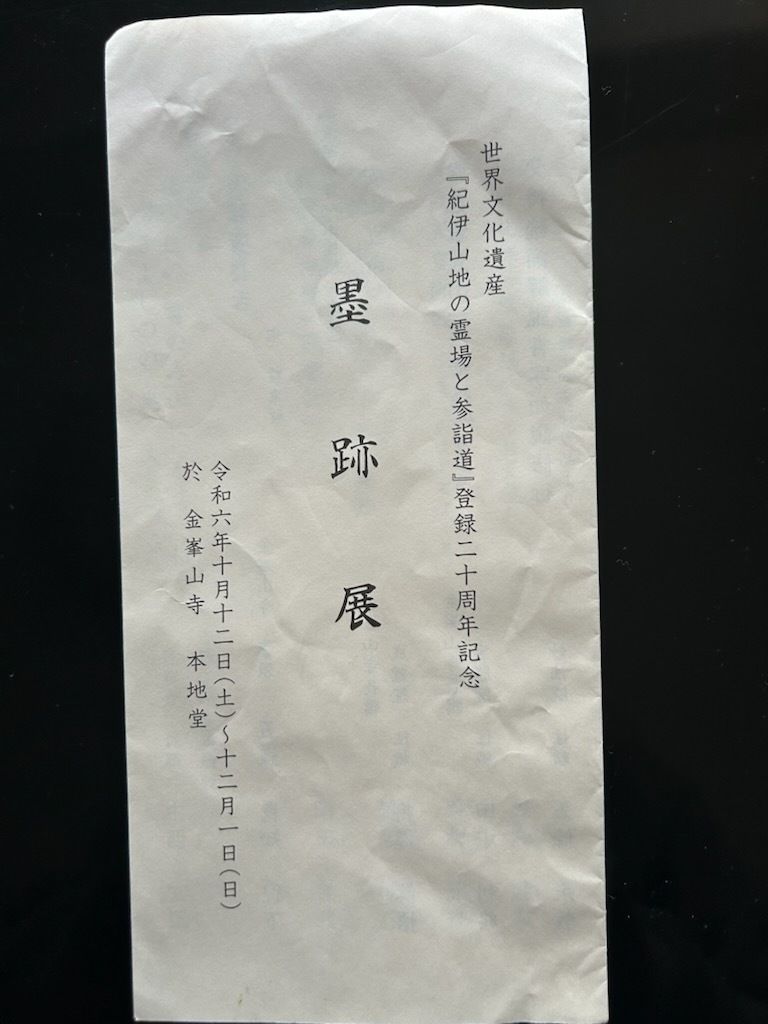 世界文化遺産
『紀伊山地の霊場と参詣道』登録二十周年記念
墨跡展
令和六年十月十二日(土)~十二月一日(日)
於 金峯山寺 本地堂